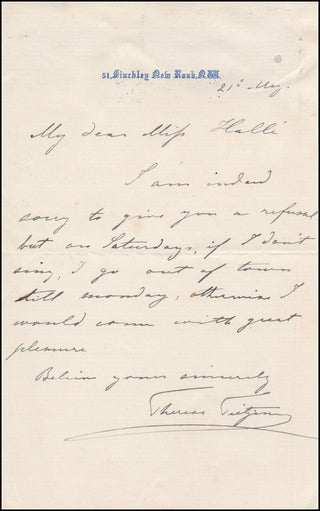 51, Finchley New Road, N.W.
21st May.
My dear Miss Hallé
I am indeed
sorry to give you a refusal
but on Saturdays, if I don't
sing, I go out of town
till monday, otherwise I
would come with great
pleasure
Believe yours sincerely
Therese Tietjens